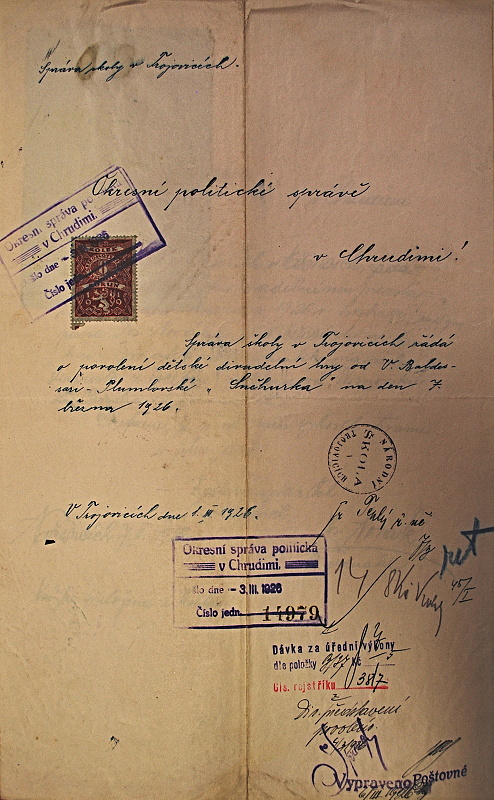 Správa školy v Trojovicích.
Okresní politické správě
v Chrudimi!
Okresní správa po
v Chrudimi.
šlo dne
Číslo je
KOLEK
Správa školy v Trojovicích žádá
o povolení dětské divadelní hry od V. Baldes-
sari-Plumlovské "Sněhurka" na den 7.
března 1926.
NÁRODNÍ ŠKOLA TROJOVICÍCH
V Trojovicích dne 1. III. 1926.
Fr. Teplý
Okresní správa politická
v Chrudimi.
šlo dne - 3. III. 1926
Číslo jedn. 14979
14
Dávka za úřední výkony
dle položky
Čís. rejstříku 387
Div. představení
povoleno
Vypraveno Poštovné